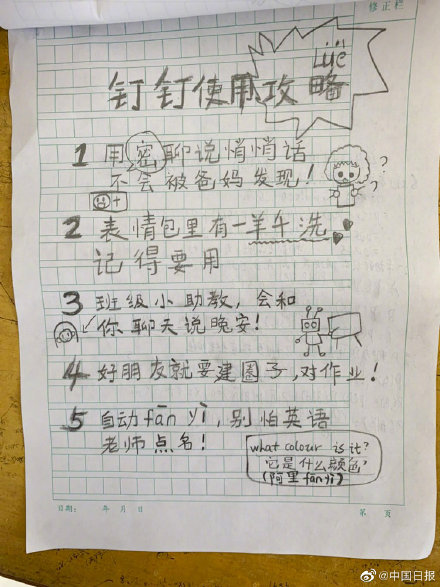 修正栏
lüè
钉钉使用攻略
1 用密聊说悄悄话
不会被爸妈发现!
2 表情包里有一羊午洗
记得要用
3 班级小助教,会和
你聊天说晚安!
4 好朋友就要建圈子,对作业!
5 自动fān yì,别怕英语
老师点名!
what colour is it?
它是什么颜色?
(阿里fānyì)
日期: 年 月 日 第 页
@中国日报